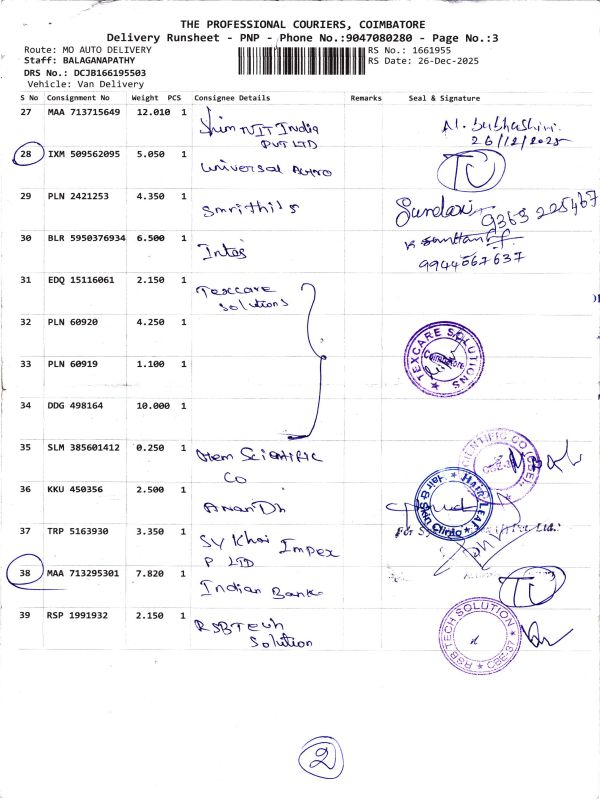 THE PROFESSIONAL COURIERS, COIMBATORE
Delivery Runsheet - PNP - Phone No.:9047080280 - Page No.:3
Route: MO AUTO DELIVERY
RS No.: 1661955
Staff: BALAGANAPATHY
RS Date: 26-Dec-2025
DRS No.: DCJB166195503
Vehicle: Van Delivery
S No Consignment No Weight PCS Consignee Details Remarks Seal & Signature
27 MAA 713715649 12.010 1 NIT India
PVT LTD
26/12/2025
28 IXM 509562095 5.050 1 Universal Auto
29 PLN 2421253 4.350 1 Smrithi's
9363 225467
30 BLR 5950376934 6.500 1
9944567637
31 EDQ 15116061 2.150 1 Texcare
Solutions
32 PLN 60920 4.250 1
TEXCARE SOLUTIONS
Coimbatore
33 PLN 60919 1.100 1
34 DDG 498164 10.000 1
35 SLM 385601412 0.250 1 Scientific
Co
36 KKU 450356 2.500 1 Anandh
37 TRP 5163930 3.350 1 Impex
P LTD
38 MAA 713295301 7.820 1 Indian Bank
39 RSP 1991932 2.150 1 RSB Tech
Solution
RSB TECH SOLUTION
CBE-37
2